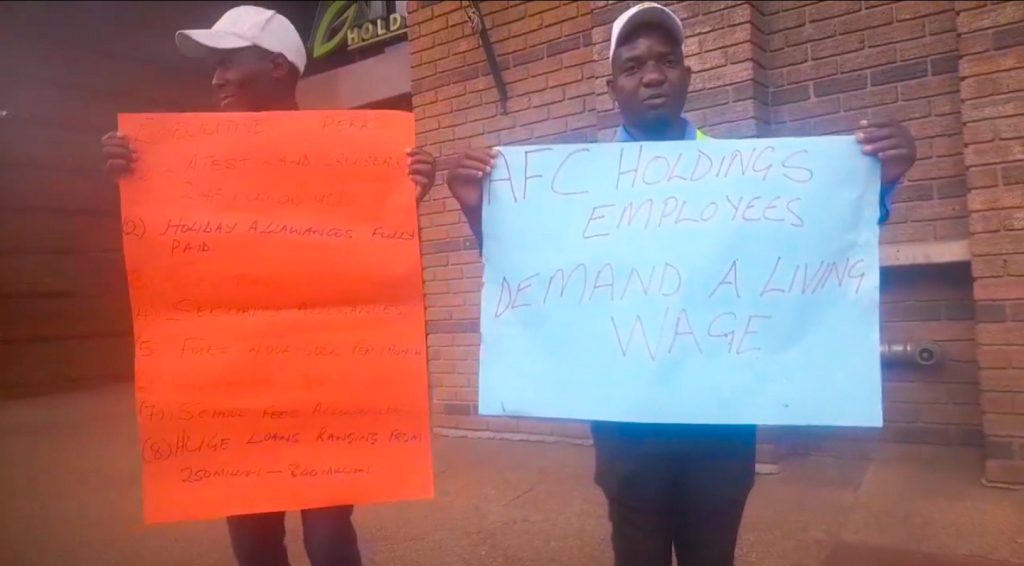 HOLD
EXECUTIVE PERKS
LATEST LAND CRUISERS
(2) HOLIDAY ALLAWANCES FULLY
PAID
4) SECURITY ALLOWANCES
5 FUEL PER MONTH
(7) SCHOOL FEES ALLOWANCES
(8) HUGE LOANS RANGING FROM
250 MILLION — 800 MILLION
AFC HOLDINGS
EMPLOYEES
DEMAND A LIVING
WAGE